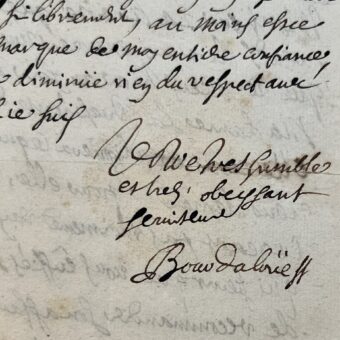 si librement, au moins est ce
marque de mon entiere confiance,
diminüe rien du respect avec
ie suis
Vostre tres humble
et tres obeissant
seruiteur
Bourdaloüe